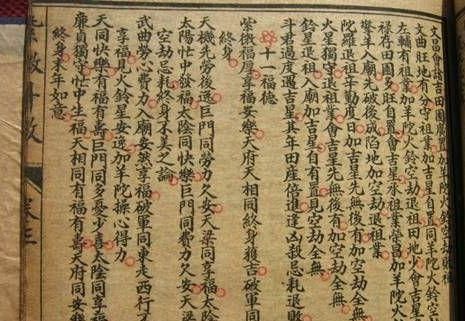 文昌會諸吉田園廣置加羊陀火鈴空劫敗祖
文曲旺地有分守祖業加吉星自置同羊陀火鈴空
左輔有祖業加羊陀火鈴空劫退祖陷地少會吉星
祿存田園多旺自置會吉星承祖業榮昌加羊陀火
擎羊入廟先破後成陷地加空劫退祖業
陀羅退祖辛勤度日加吉星先無後有加空劫全無
火星獨守退祖業會吉星先無後有加空劫全無
鈴星退祖入廟加吉星自有置見空劫全無
斗君過度遇吉星其年田座倍進逢凶殺忌耗退敗
十一福德
紫微福厚享福安樂天府天相同終身獲吉破軍同
終身
天機先勞後逸巨門同勞力欠安天梁同享福太陰
太陽忙中發福太陰同快樂巨門同費力欠安天梁
空劫忌耗終身不美之論
武曲勞心費力入廟安然享福破軍同東走西行不
享福見火鈴星安逸加羊陀操心得力
天同快樂有福有壽巨門同多憂少喜太陰同享福
廉貞獨守忙中生福天相同有福有壽天府同安樂
終身末年如意
卷三